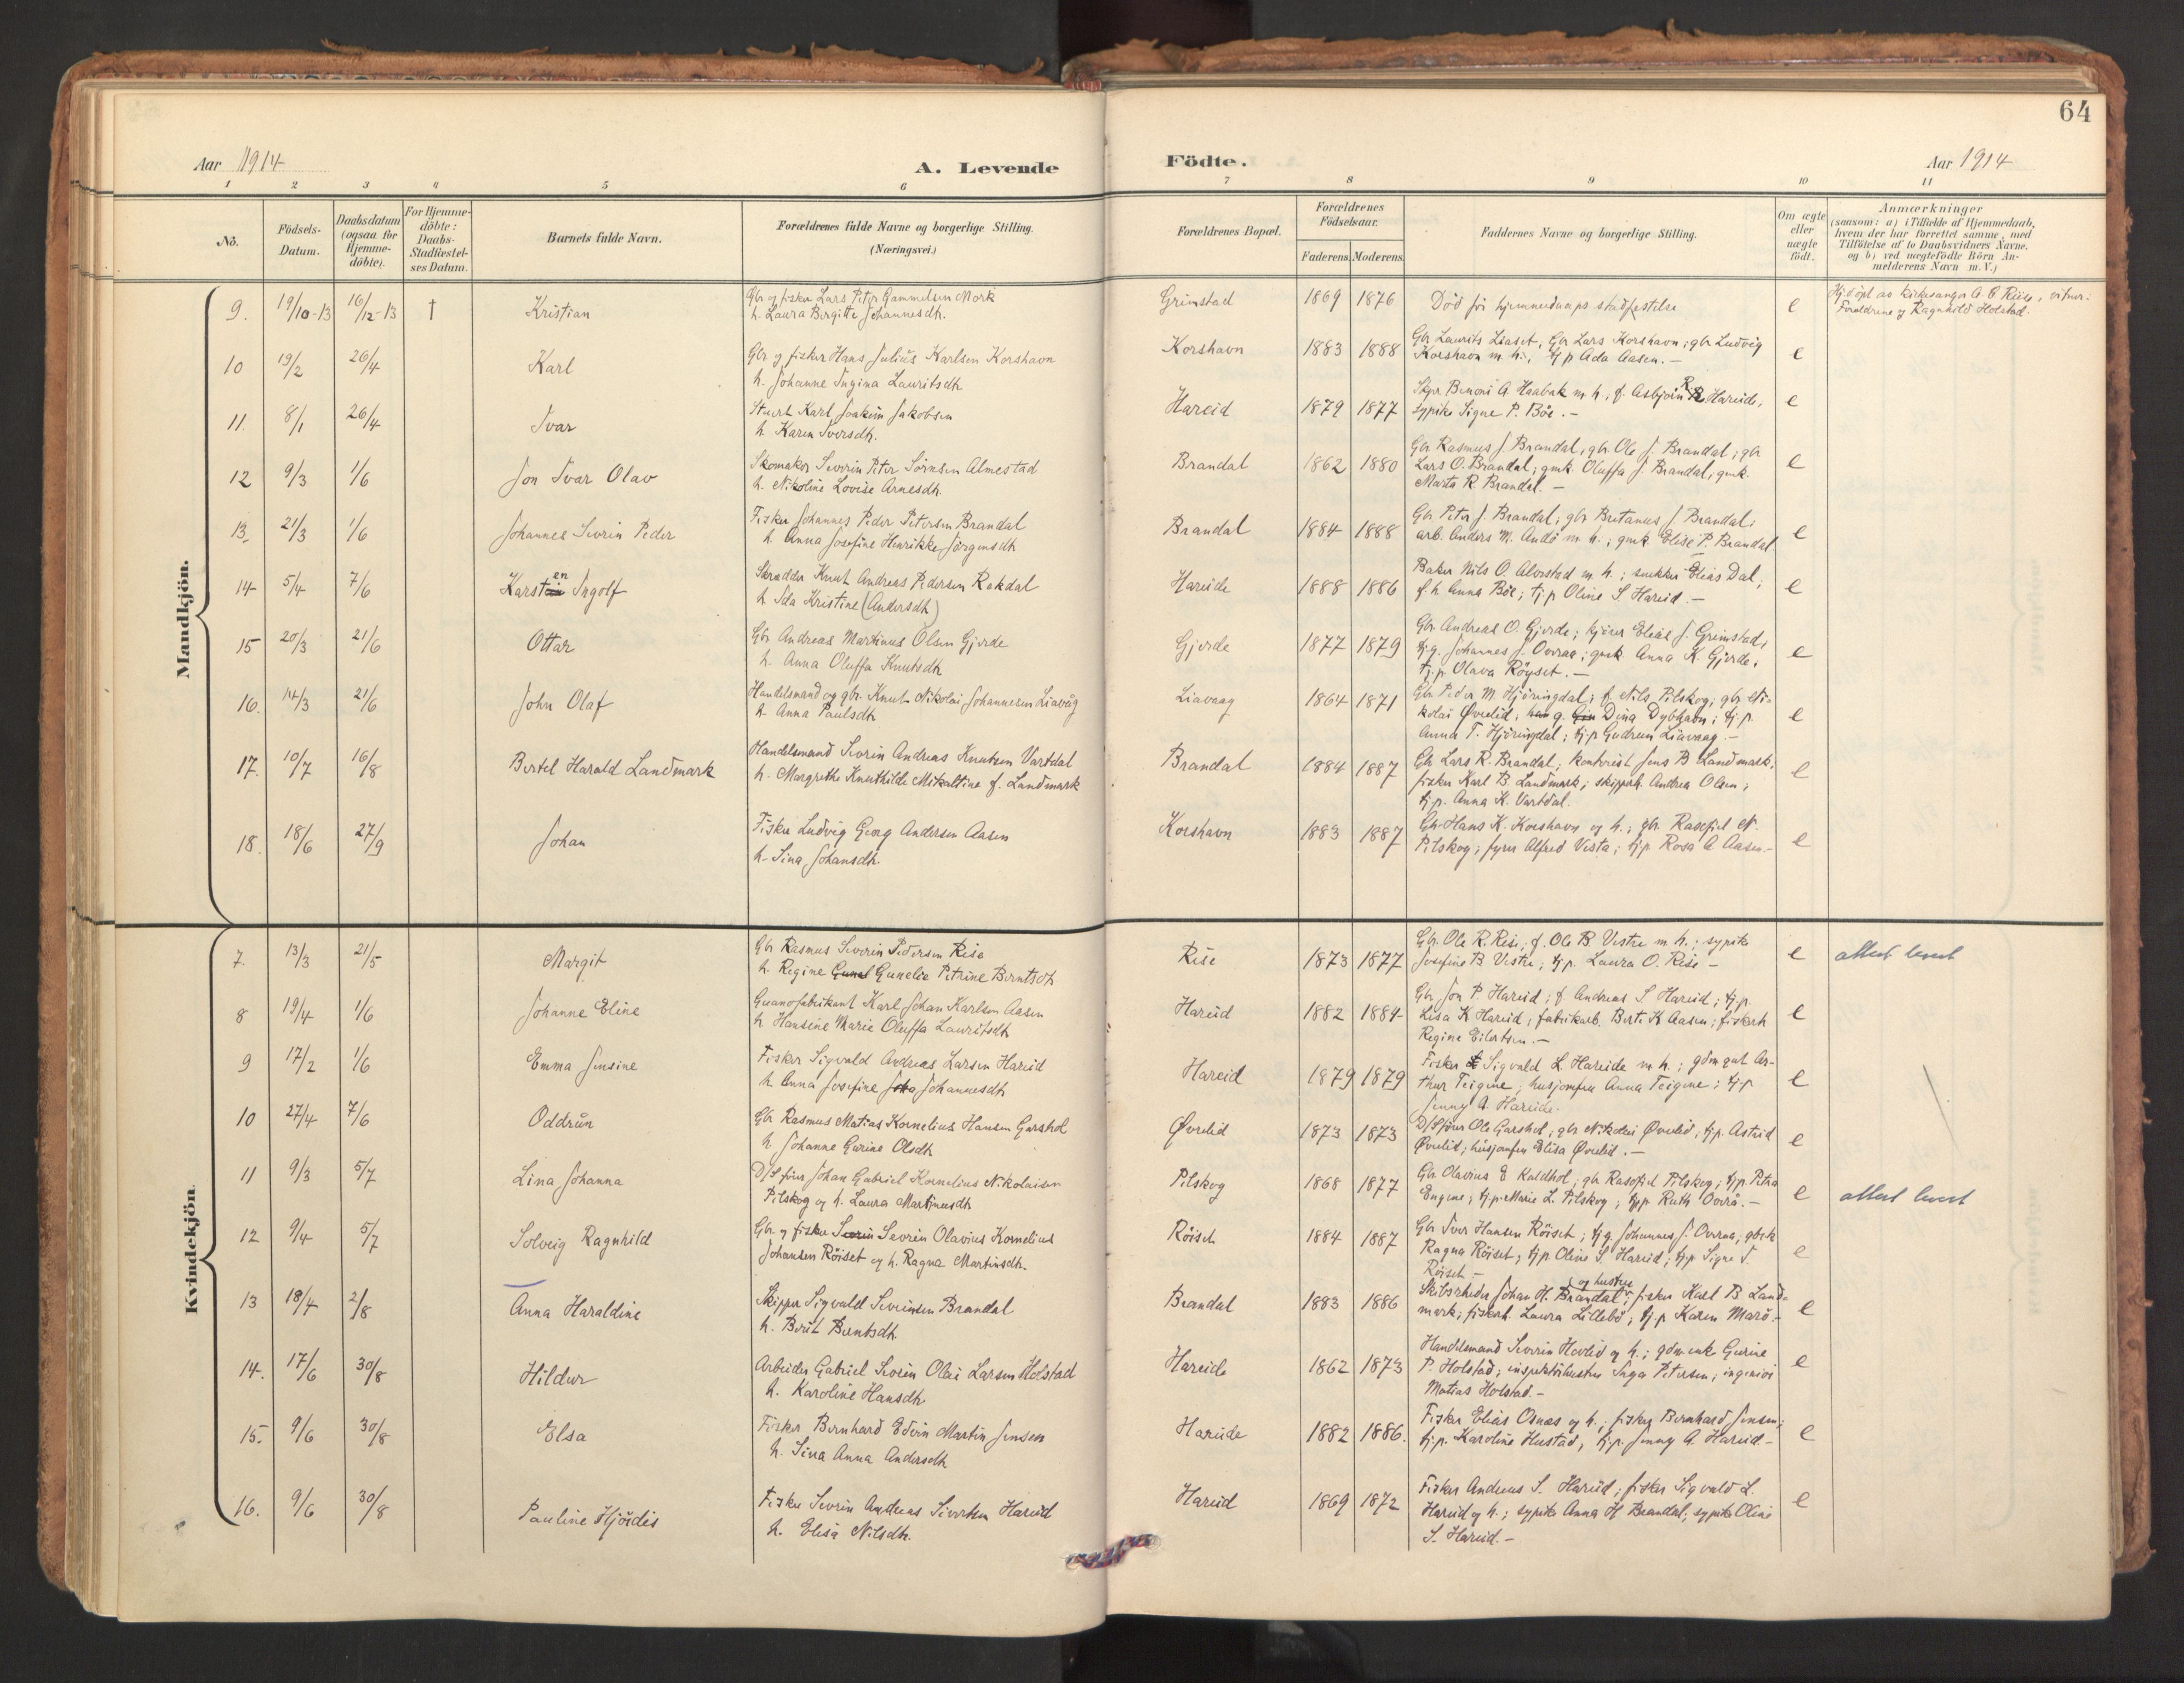 64
Aar 1914
A. Levende
Födte.
Aar 1914
1 2 3 4 5 6 7 8 9 10 11
No.
Födsels-Datum.
Daabsdatum (ogsaa for Hjemme-döbte).
For Hjemme-döbte: Daabs-Stadfæstel-ses Datum.
Barnets fulde Navn.
Forældrenes fulde Navne og borgerlige Stilling.
(Næringsvei.)
Forældrenes Bopæl.
Forældrenes Födselsaar.
Faderens. Moderens.
Faddernes Navne og borgerlige Stilling.
Om ægte eller uægte födt.
Anmærkninger
(saasom: a) i Tilfælde af Hjemmedaab,
hvem der har forrettet samme, med
Tilföielse af to Daabsvidners Navne,
og b) ved uægtefödte Börn An-
melderens Navn m. V.)
Mandkjön.
9. 19/10-13 16/12-13 † Kristian
Gbr og fisker Lars Peter Gammelsen Mork
h. Laura Birgitte Johannesdh.
Grimstad 1869 1876
Död för hjemmedaaps stadfestelse
e
Hj.döpt av kirkesanger A. B. Riise, vitner:
Foreldrene og Ragnhild Holstad.
10 19/2 26/4 Karl
Gbr og fisker Hans Julius Karlsen Korshavn
h. Johanne Ingina Lauritsdh
Korshavn 1883 1888
Gbr Laurits Liaset, Gbr Lars Korshavn, gbr Ludvig
Korshavn m. h., tj p Ada Aasen. –
e
11. 8/1 26/4 Ivar
Stuert Karl Joakim Jakobsen
h. Karen Iversdh.
Hareid 1879 1877
Skpr Benoni A. Haabak m. h., f. Asbjørn R Hareide,
sypike Signe P. Böe. –
e
12 9/3 1/6 Jon Ivar Olav
Skomaker Severin Peter Sörnsen Almestad
h. Nikoline Lovise Arnesdh.
Brandal 1862 1880
Gbr Rasmus J. Brandal, gbr Ole J. Brandal; gbr
Lars O. Brandal; gmk. Oluffa J. Brandal, gmk.
Marta R. Brandal. –
e
13. 21/3 1/6 Johannes Severin Peder
Fisker Johannes Peder Petersen Brandal
h. Anna Josefine Henrikke Jörgensdh
Brandal 1884 1888
Gbr Peter J. Brandal; gbr Bretanus J. Brandal;
arb. Anders M. Andö m. h.; gmk. Elise P. Brandal
e
14 5/4 7/6 Karsten Ingolf
Skredder Knut Andreas Pedersen Rakdal
h. Ida Kristine (Andersdh)
Hareide 1888 1886
Baker Nils O. Alvestad m. h.; snekker Elias Dal;
f. h. Anna Böe; tj p Oline S. Hareid. –
e
15 20/3 21/6 Ottar
Gbr Andreas Martinus Olsen Gjerde
h. Anna Oluffa Knutsdh
Gjerde 1877 1879
Gbr Andreas O. Gjerde; kjörer Elias J. Grimstad;
tj.g. Johannes J. Overaa; gmk Anna K. Gjerde,
tj.p Olava Röyset. –
e
16. 14/3 21/6 John Olaf
Handelsmand og gbr. Knut Nikolai Johannesen Liavåg
h. Anna Paulsdh
Liavaag 1864 1871
Gbr Peder M. Hjöringdal; f. Nils Pilskog; gbr Ni-
kolai Øvrelid, g. Dina Dybhavn; tj.p.
Anna T. Hjöringdal; tj p Gudrun Liavaag. –
e
17. 10/7 16/8 Bertel Harald Landmark
Handelsmand Severin Andreas Knutsen Vartdal
h. Margrethe Knuthilde Mikaltine f. Landmark
Brandal 1884 1887
Gbr Lars R. Brandal; kontorist Jens B Landmark;
fisker Karl B. Landmark; skipperh. Andrea Olsen;
tj.p. Anna K. Vartdal.
e
18. 18/6 27/9 Johan
Fisker Ludvig Georg Andersen Aasen
h. Lina Johansdh.
Korshavn 1883 1887
Gbr Hans K. Korshavn og h.; gbr. Rasefid N.
Pilskog; fyrer Alfred Vesta; tj.p Rosa A Aasen –
e
Kvindekjön.
7. 13/3 21/5 Margit
Gbr Rasmus Severin Pedersen Rise
h. Regine Gunelie Petrine Berntsdh
Rise 1873 1877
Gbr. Ole R. Rise; f. Ole B. Vestre m. h.; sypike
Josefine B. Vestre; tj.p. Laura O. Rise –
e
attest levert
8 19/4 1/6 Johanne Eline
Guanofabrikant Karl Johan Karlsen Aasen
h. Hansine Marie Oluffa Lauritsdh
Hareid 1882 1884
Gbr Jon P. Hareid; f. Andreas S. Hareid; tj.p.
Lisa K Hareid; fabrikarb. Berte K Aasen; fiskerh
Regine Eilertsen. –
e
9 17/2 1/6 Emma Jensine
Fisker Sigvald Andreas Larsen Hareid
h. Anna Josefine Johannesdh
Hareid 1879 1879
Fisker Sigvald L Hareide m. h.; gdm gut Ar-
thur Teigene, husjomfru Anna Teigene; tj.p
Jenny A. Hareide.
e
10 27/4 7/6 Oddrun
Gbr Rasmus Matias Kornelius Hansen Garshol
h. Johanne Gurine Olsdh
Øvrelid 1873 1873
D/Sförer Ole Garshol, gbr Nikolai Øvrelid, tj.p. Astrid
Øvrelid; husjomfru Elisa Øvrelid. –
e
11 9/3 5/7 Lina Johanna
D/S förer Johan Gabriel Kornelius Nikolaisen
Pilskog og h. Laura Martinusdh
Pilskog 1868 1877
Gbr Olavius E Kaldhol, gbr Rasefid Pilskog; tj.p Petra
Eugene; tj.p. Marie L. Pilskog; tj.p Ruth Overå. –
e
attest levert
12 9/4 5/7 Solveig Ragnhild
Gbr og fisker Severin Olavius Kornelius
Johansen Röiset og h. Ragna Martinsdh.
Röiset 1884 1887
Gbr Iver Hansen Röiset; tj g. Johannes J. Overaa, gbrk
Ragna Röiset, tj.p Oline S. Hareid; tj.p Signe I.
Röiset –
e
13 18/4 2/8 Anna Haraldine
Skipper Sigvald Severinsen Brandal
h. Berit Berntsdh
Brandal 1883 1886
Skibsrheder Johan H. Brandal og hustru; fisker Karl B Land-
mark; fiskerh. Laura Lillebö; tj.p Karen Marö. –
e
14. 17/6 30/8 Hildur
Arbeider Gabriel Severin Olai Larsen Holstad
h. Karoline Hansdh.
Hareide 1862 1873
Handelsmand Severin Hovlid og h.; gdm enke Gurine
P. Holstad; inspektörhustru Inga Petersen; ingeniör
Matias Holstad. –
e
15. 9/6 30/8 Elsa
Fisker Bernhard Edvin Martin Jensen
h. Lina Anna Andersdh
Hareide 1882 1886.
Fisker Elias Osnes og h.; fisker Bernhard Jensen;
tj.p. Karoline Hustad, tj.p. Jenny A. Hareid. –
e
16. 9/6 30/8 Pauline Hjördis
Fisker Severin Andreas Sivertsen Hareid
h. Elisa Nilsdh.
Hareid 1869 1872
Fisker Andreas S. Hareid; fisker Sigvald L.
Hareid og h.; sypike Anna H Brandal; sypike Oline
S. Hareid. –
e